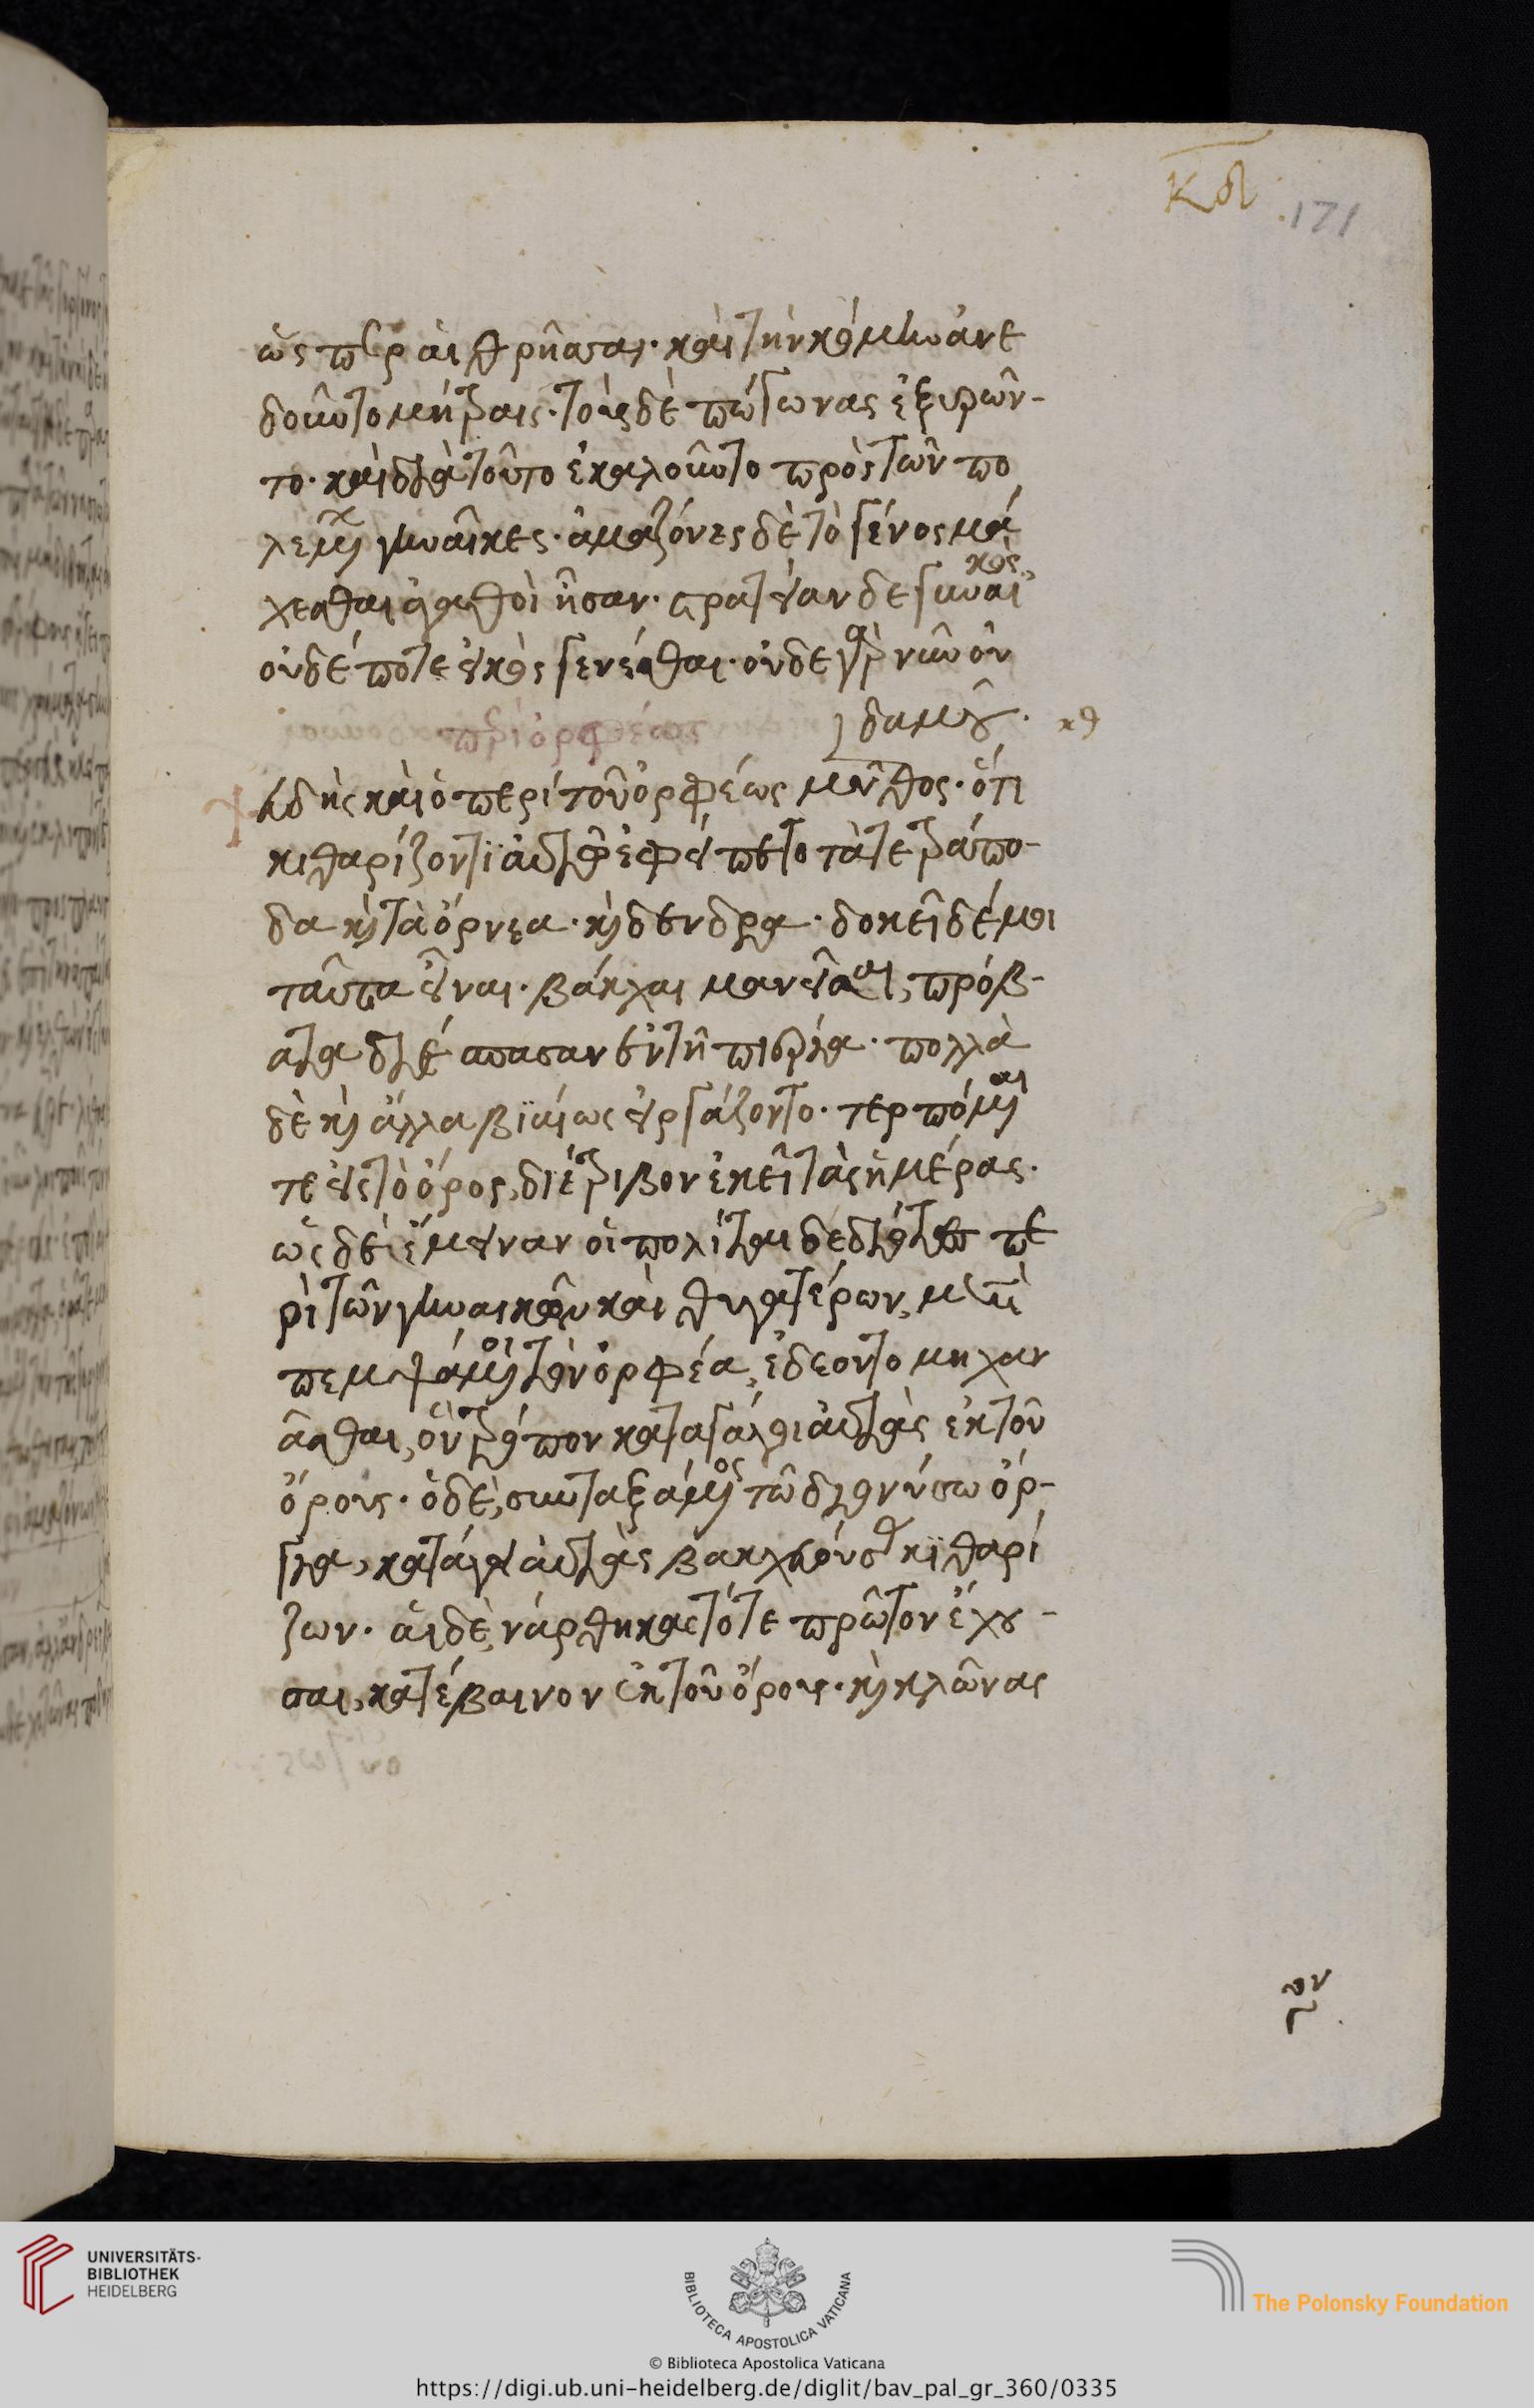 κδ 171
ὥσπερ αἱ θρῆσσαι· καὶ τὴν κόμην ἀνε
δοῦντο μήτραις· τοὺς δὲ πώγωνας ἐξυρῶν-
το· καὶ διὰ τοῦτο ἐκαλοῦντο πρὸς τῶν πο
λεμίων γυναῖκες· ἀμαζόνες δὲ τὸ γένος μά
χεσθαι ἀγαθοὶ ἦσαν· στρατείαν δὲ γυναικὸς
οὐδέποτε εἰκὸς γενέσθαι· οὐδὲ γὰρ νῦν οὐ
δαμοῦ· κθ
περὶ ὀρφέως
καλὸς καὶ ὁ περὶ τοῦ ὀρφέως μῦθος· ὅτι
κιθαρίζοντι αὐτῷ ἐφείπετο τὰ τετράπο-
δα καὶ τὰ ὄρνεα· καὶ δένδρα· δοκεῖ δέ μοι
ταῦτα εἶναι· βάκχαι μανεῖσαι, πρόβ-
ατα διέσπασαν ἐν τῇ πιερία· πολλὰ
δὲ καὶ ἄλλα βιαίως εἰργάζοντο· τερπόμεναι
τε εἰς τὸ ὄρος, διέτριβον ἐκεῖ τὰς ἡμέρας·
ὡς δὲ ἔμειναν οἱ πολῖται δεδιότες πε
ρὶ τῶν γυναικῶν καὶ θυγατέρων, μετα
πεμψάμενοι τὸν ὀρφέα, ἐδέοντο μηχαν
ᾶσθαι, ὃν τρόπον καταγάγοι αὐτὰς ἐκ τοῦ
ὄρους· ὁ δὲ, συνταξάμενος τῶ διονύσω ὄρ-
για, κατάγει αὐτὰς βακχευούσας κιθαρί
ζων· αἱ δὲ, νάρθηκας τότε πρῶτον ἔχου-
σαι, κατέβαινον ἐκ τοῦ ὄρους· καὶ κλῶνας
UNIVERSITÄTS-
BIBLIOTHEK
HEIDELBERG
BIBLIOTECA APOSTOLICA VATICANA
The Polonsky Foundation
© Biblioteca Apostolica Vaticana
https://digi.ub.uni-heidelberg.de/diglit/bav_pal_gr_360/0335